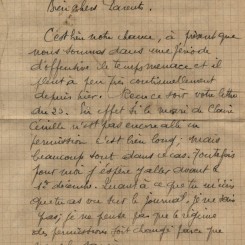 Bien chers Parents.
C'est bien notre chance, à présent que
nous sommes dans une période
d'offensive de temps menace et il
pleut à peu près continuellement
depuis hier. Reçu ce soir votre lettre
du 23. En effet si le mari de Claire
n'est pas encore allé en
permission c'est bien long; mais
beaucoup sont dans ce cas. Toutefois
pour moi j'espère aller avant le
15 décembre. Quant à ce que tu m'écris
que tu as vu sur le journal. Je ne sais
pas; je ne pense pas que le régime
des permissions soit changé parce que